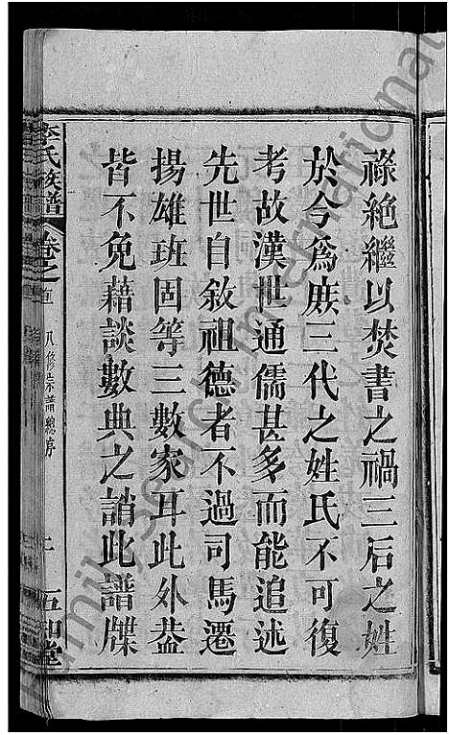 祿絶繼以焚書之禍三后之姓
於今爲庶三代之姓氏不可復
考故漢世通儒甚多而能追述
先世自敘祖德者不過司馬遷
揚雄班固等三數家耳此外葢
皆不免藉談數典之誚此譜牒
李氏族譜 卷之 八修宗譜總序
五知堂